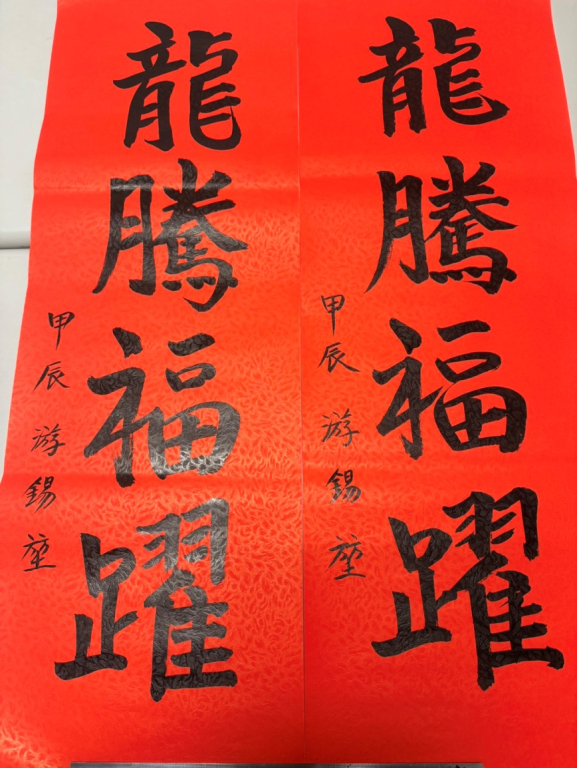 龍騰福躍
甲辰 游錫堃
龍騰福躍
甲辰 游錫堃